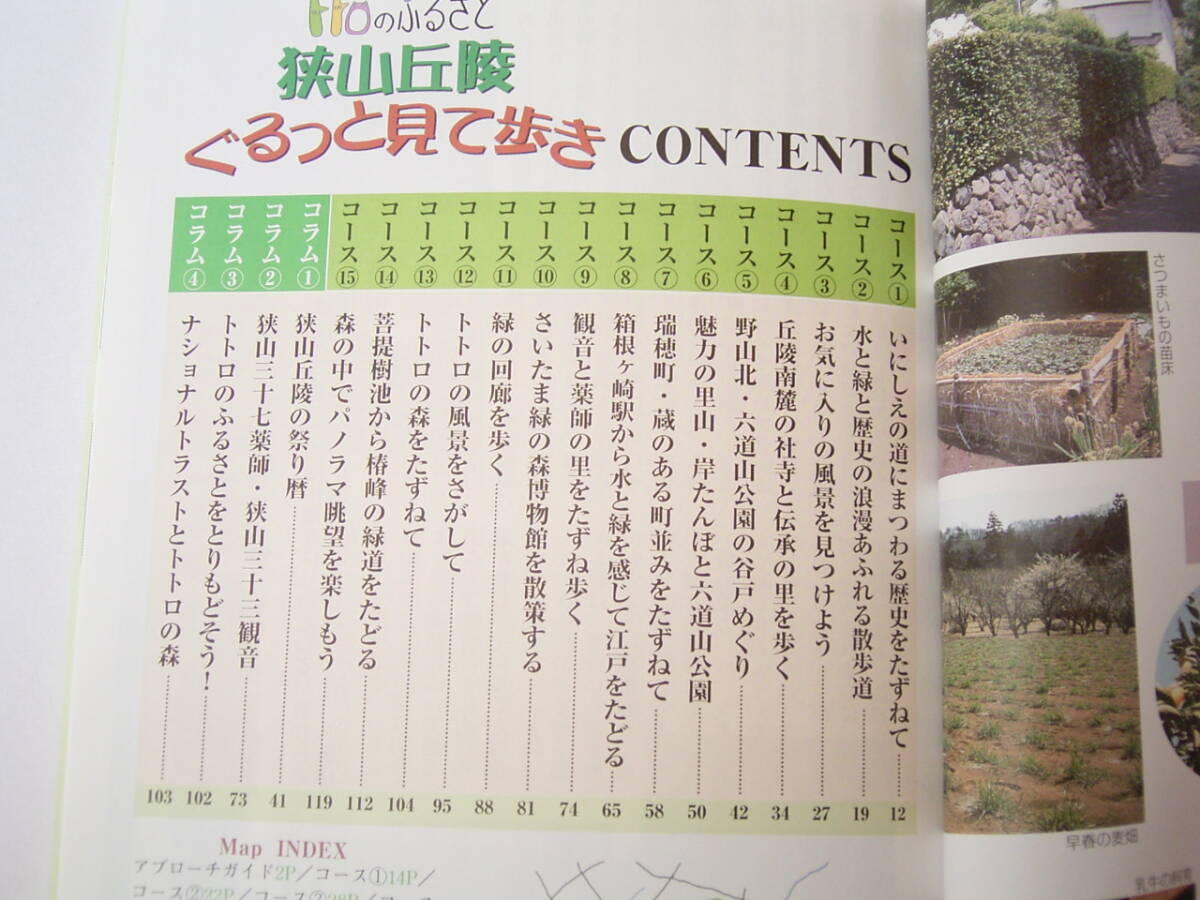 トトロのふるさと
狭山丘陵
ぐるっと見て歩き CONTENTS
コース① いにしえの道にまつわる歴史をたずねて 12
コース② 水と緑と歴史の浪漫あふれる散歩道 19
コース③ お気に入りの風景を見つけよう 27
コース④ 丘陵南麓の社寺と伝承の里を歩く 34
コース⑤ 野山北・六道山公園の谷戸めぐり 42
コース⑥ 魅力の里山・岸たんぼと六道山公園 50
コース⑦ 瑞穂町・蔵のある町並みをたずねて 58
コース⑧ 箱根ヶ崎駅から水と緑を感じて江戸をたどる 65
コース⑨ 観音と薬師の里をたずね歩く 74
コース⑩ さいたま緑の森博物館を散策する 81
コース⑪ 緑の回廊を歩く 88
コース⑫ トトロの風景をさがして 95
コース⑬ トトロの森をたずねて 104
コース⑭ 菩提樹池から椿峰の緑道をたどる 112
コース⑮ 森の中でパノラマ眺望を楽しもう 119
コラム① 狭山丘陵の祭り暦 41
コラム② 狭山三十七薬師・狭山三十三観音 73
コラム③ トトロのふるさとをとりもどそう! 102
コラム④ ナショナルトラストとトトロの森 103
Map INDEX
アプローチガイド2P／コース①14P／
コース②22P／コース③28P／コース
さつまいもの苗床
早春の麦畑
乳牛の飼育